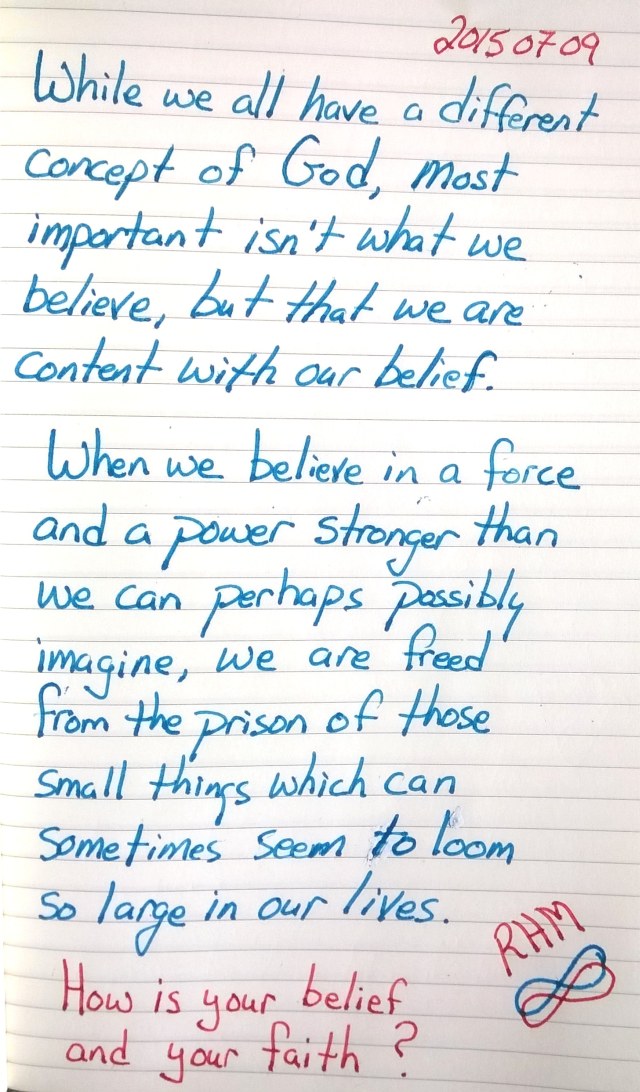 20150709
While we all have a different
concept of God, most
important isn't what we
believe, but that we are
content with our belief.
When we believe in a force
and a power stronger than
we can perhaps possibly
imagine, we are freed
from the prison of those
small things which can
sometimes seem to loom
so large in our lives.
RHM
How is your belief
and your faith?